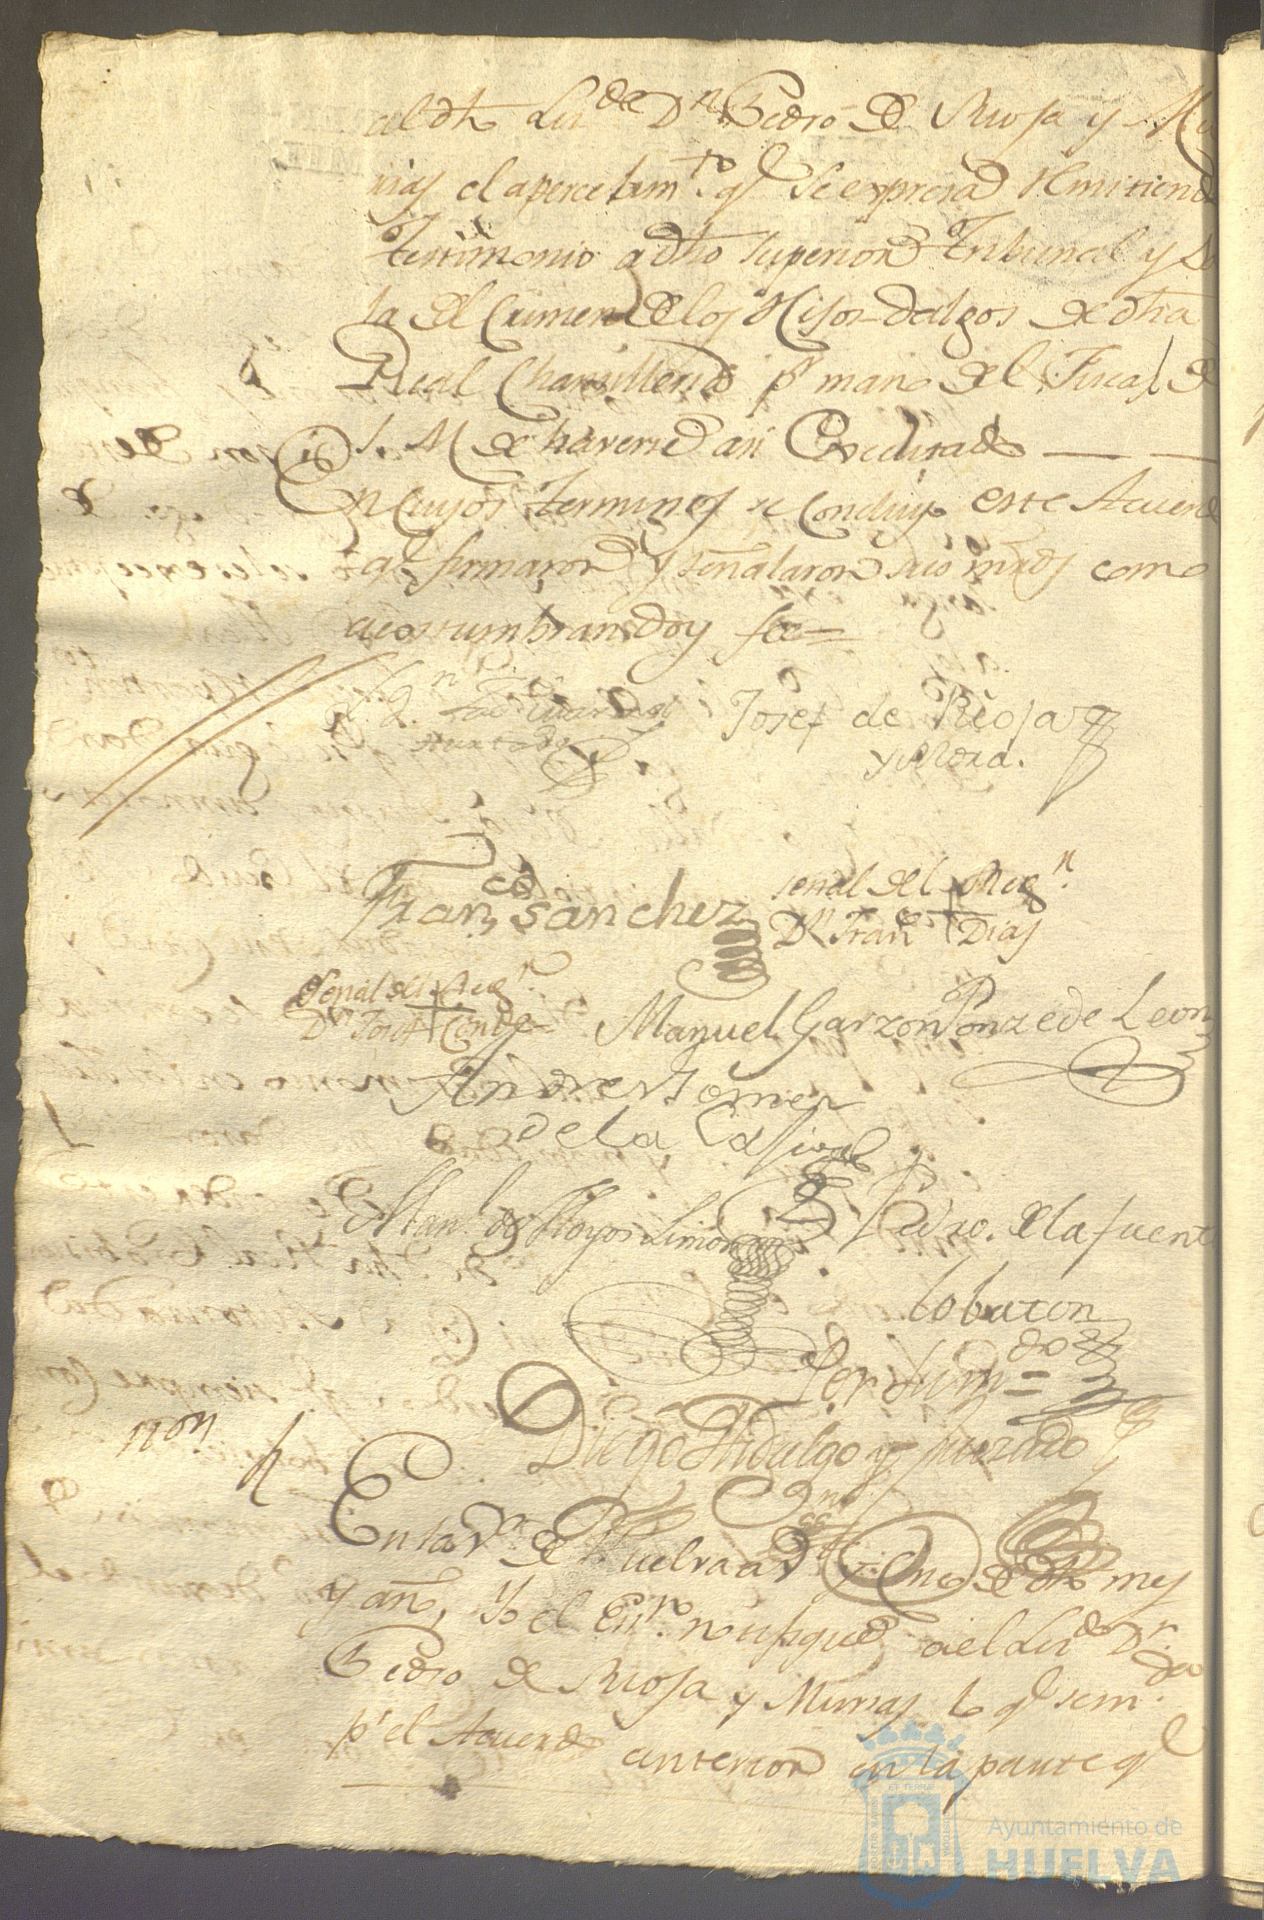 al dho Lizdo Dn Pedro de Rioja y Mu
nias el apercebimto q se expresa remitiendo
testimonio a dho Superior Tribunal y Sa
la del Crimen de los Hijos-dalgos de dha
Real Chanzilleria pr mano del Fiscal de
S. M. de haverse asi executado
En cuyos terminos se concluyo este Acuerdo
q firmaron y señalaron sus mrds como
acostumbran doy fee =
Josef de Rioja
y Mora.
Franco Sanchez
señal del Regr
Dn Franco + Dias
Señal del Regr
Dn Josef + Conde
Manuel Garzon Ponze de Leon
Andres Gomez
de la
Manl de Hoyos Limon
Pedro de la fuente
lobaton
Diego Hidalgo y jurado
non
En la Va de Huelva a de dho mes
y año, Yo el Esno notifique a el Lizdo Dn
Pedro de Rioja y Munias lo q se mda
pr el Acuerdo anterior en la parte q
Ayuntamiento de
HUELVA